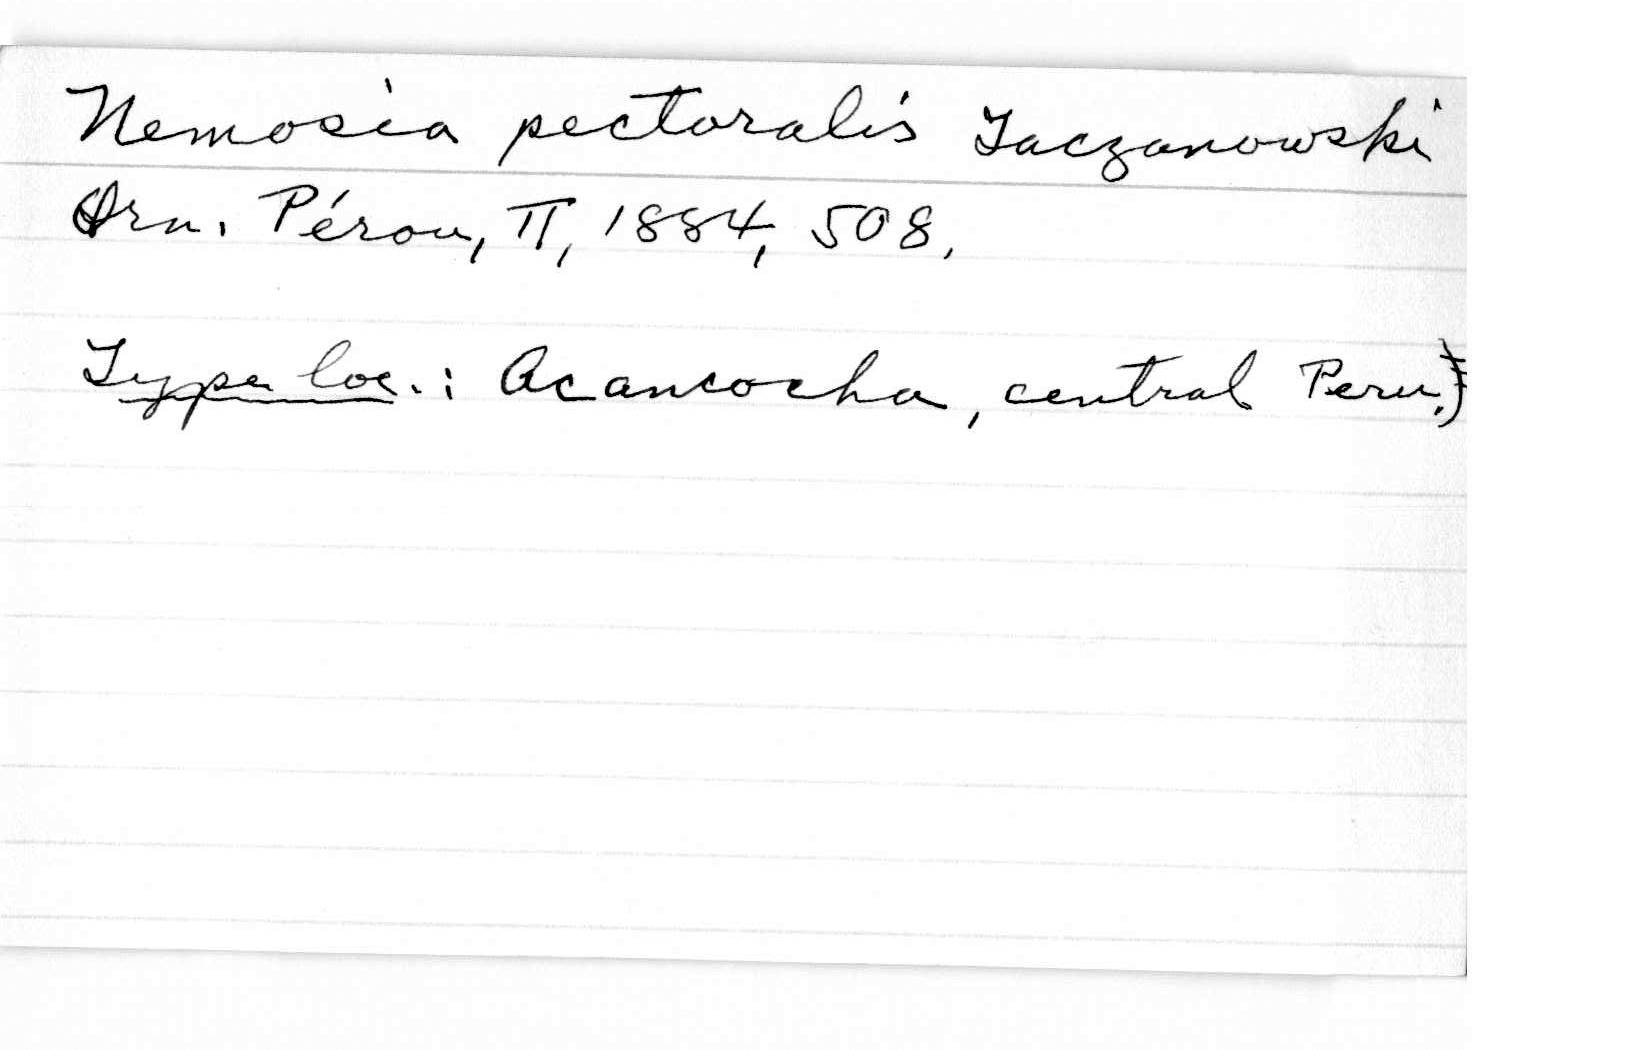 Nemosia pectoralis Taczanowski
Orn. Pérou, II, 1884, 508,
Type loc.: Acancocha, central Peru.)